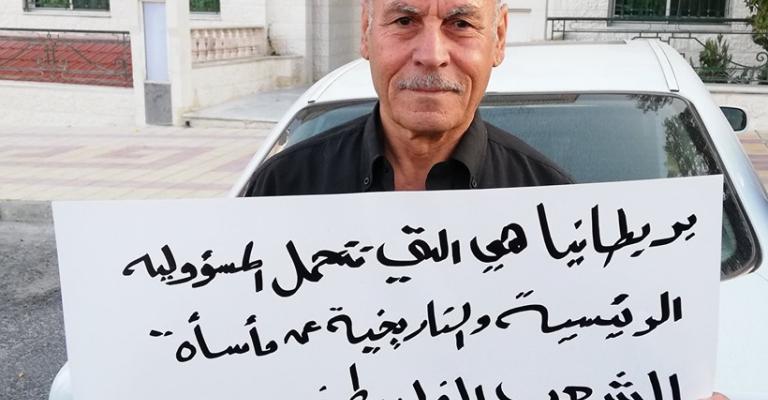 بريطانيا هي التي تتحمل المسؤولية
الرئيسية والتاريخية عن مأساة
الشعب الفلسطيني